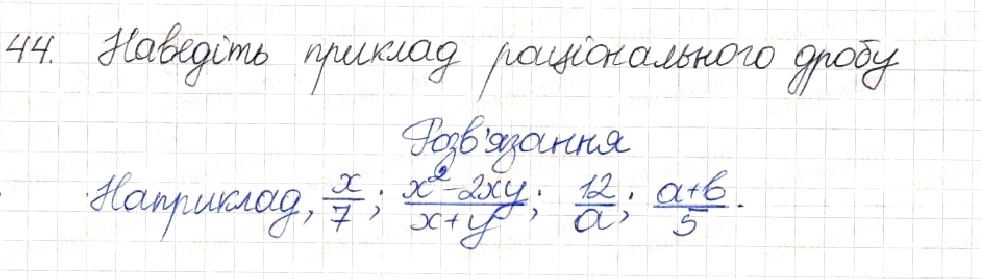 44. Наведіть приклад раціонального дробу
Розв'язання
Наприклад, x/7; x²-2xy/x+y; 12/a; a+b/5.